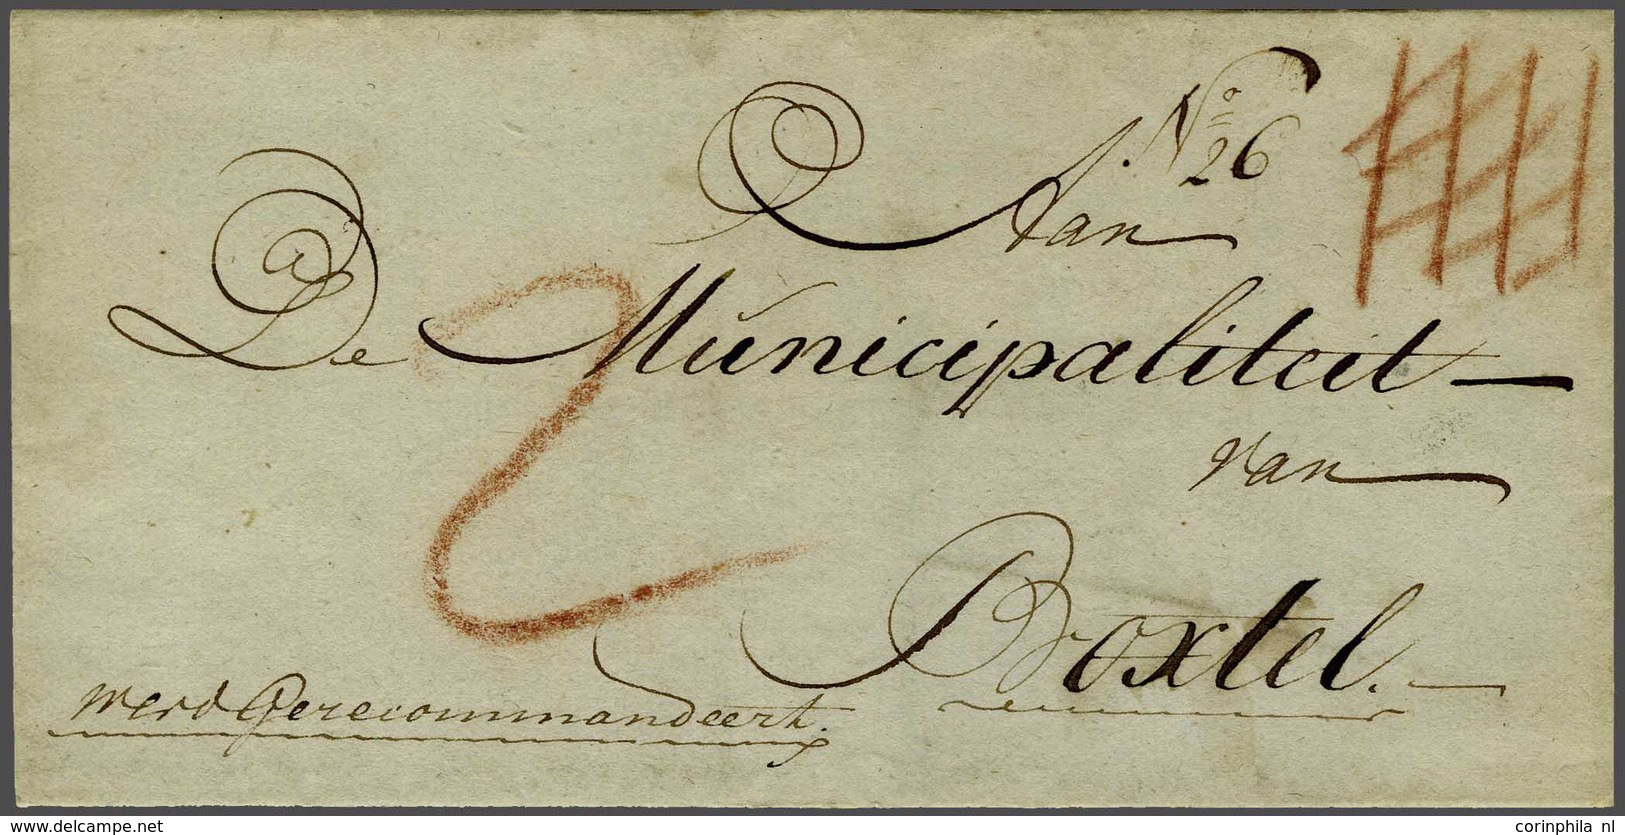 No 26
Aan
De Municipaliteit
van
Boxtel.
werd Gerecommandeert.
2
delcampe.net
corinphila nl